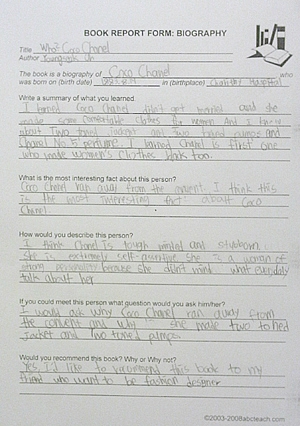 BOOK REPORT FORM: BIOGRAPHY
Title What Coco Chanel
Author
The book is a biography of Coco Chanel who
was born on (birth date) in (birthplace)
Write a summary of what you learned.
I learned Coco Chanel didn't get married and she
made some comfortable clothes for women And I knew
about Two toned jacket and two toned pumps and
Chanel No 5 perfume. I learned Chanel is first one
who made women's clothes black too.
What is the most interesting fact about this person?
Coco Chanel ran away from the convent. I think this
is the most interesting fact about Coco
Chanel.
How would you describe this person?
I think Chanel is tough minded and stubborn.
She is extremely self-assertive She is a woman of
strong personality because she didn't mind what everybody
talk about her
If you could meet this person what question would you ask him/her?
I would ask why Coco Chanel ran away from
the convent and why she made two toned
jacket and two toned pumps.
Would you recommend this book? Why or Why not?
Yes, I'd like to recommend this book to my
friend who want to be fashion designer
©2003-2008abcteach.com